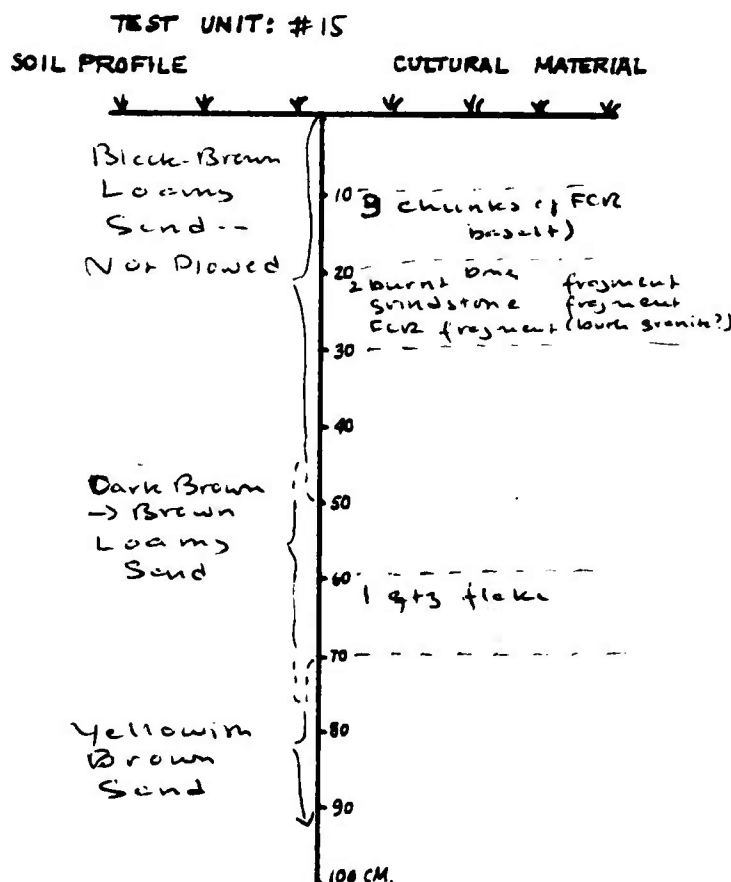 TEST UNIT: #15
SOIL PROFILE
CULTURAL MATERIAL
Black-Brown
Loamy
Sand --
Not Plowed
Dark Brown
-> Brown
Loamy
Sand
Yellowish
Brown
Sand
10
20
30
40
50
60
70
80
90
100 CM.
chunks of FCR
basalt)
2 burnt bone fragment
grindstone fragment
FCR fragment (burk granite?)
1 qtz flake